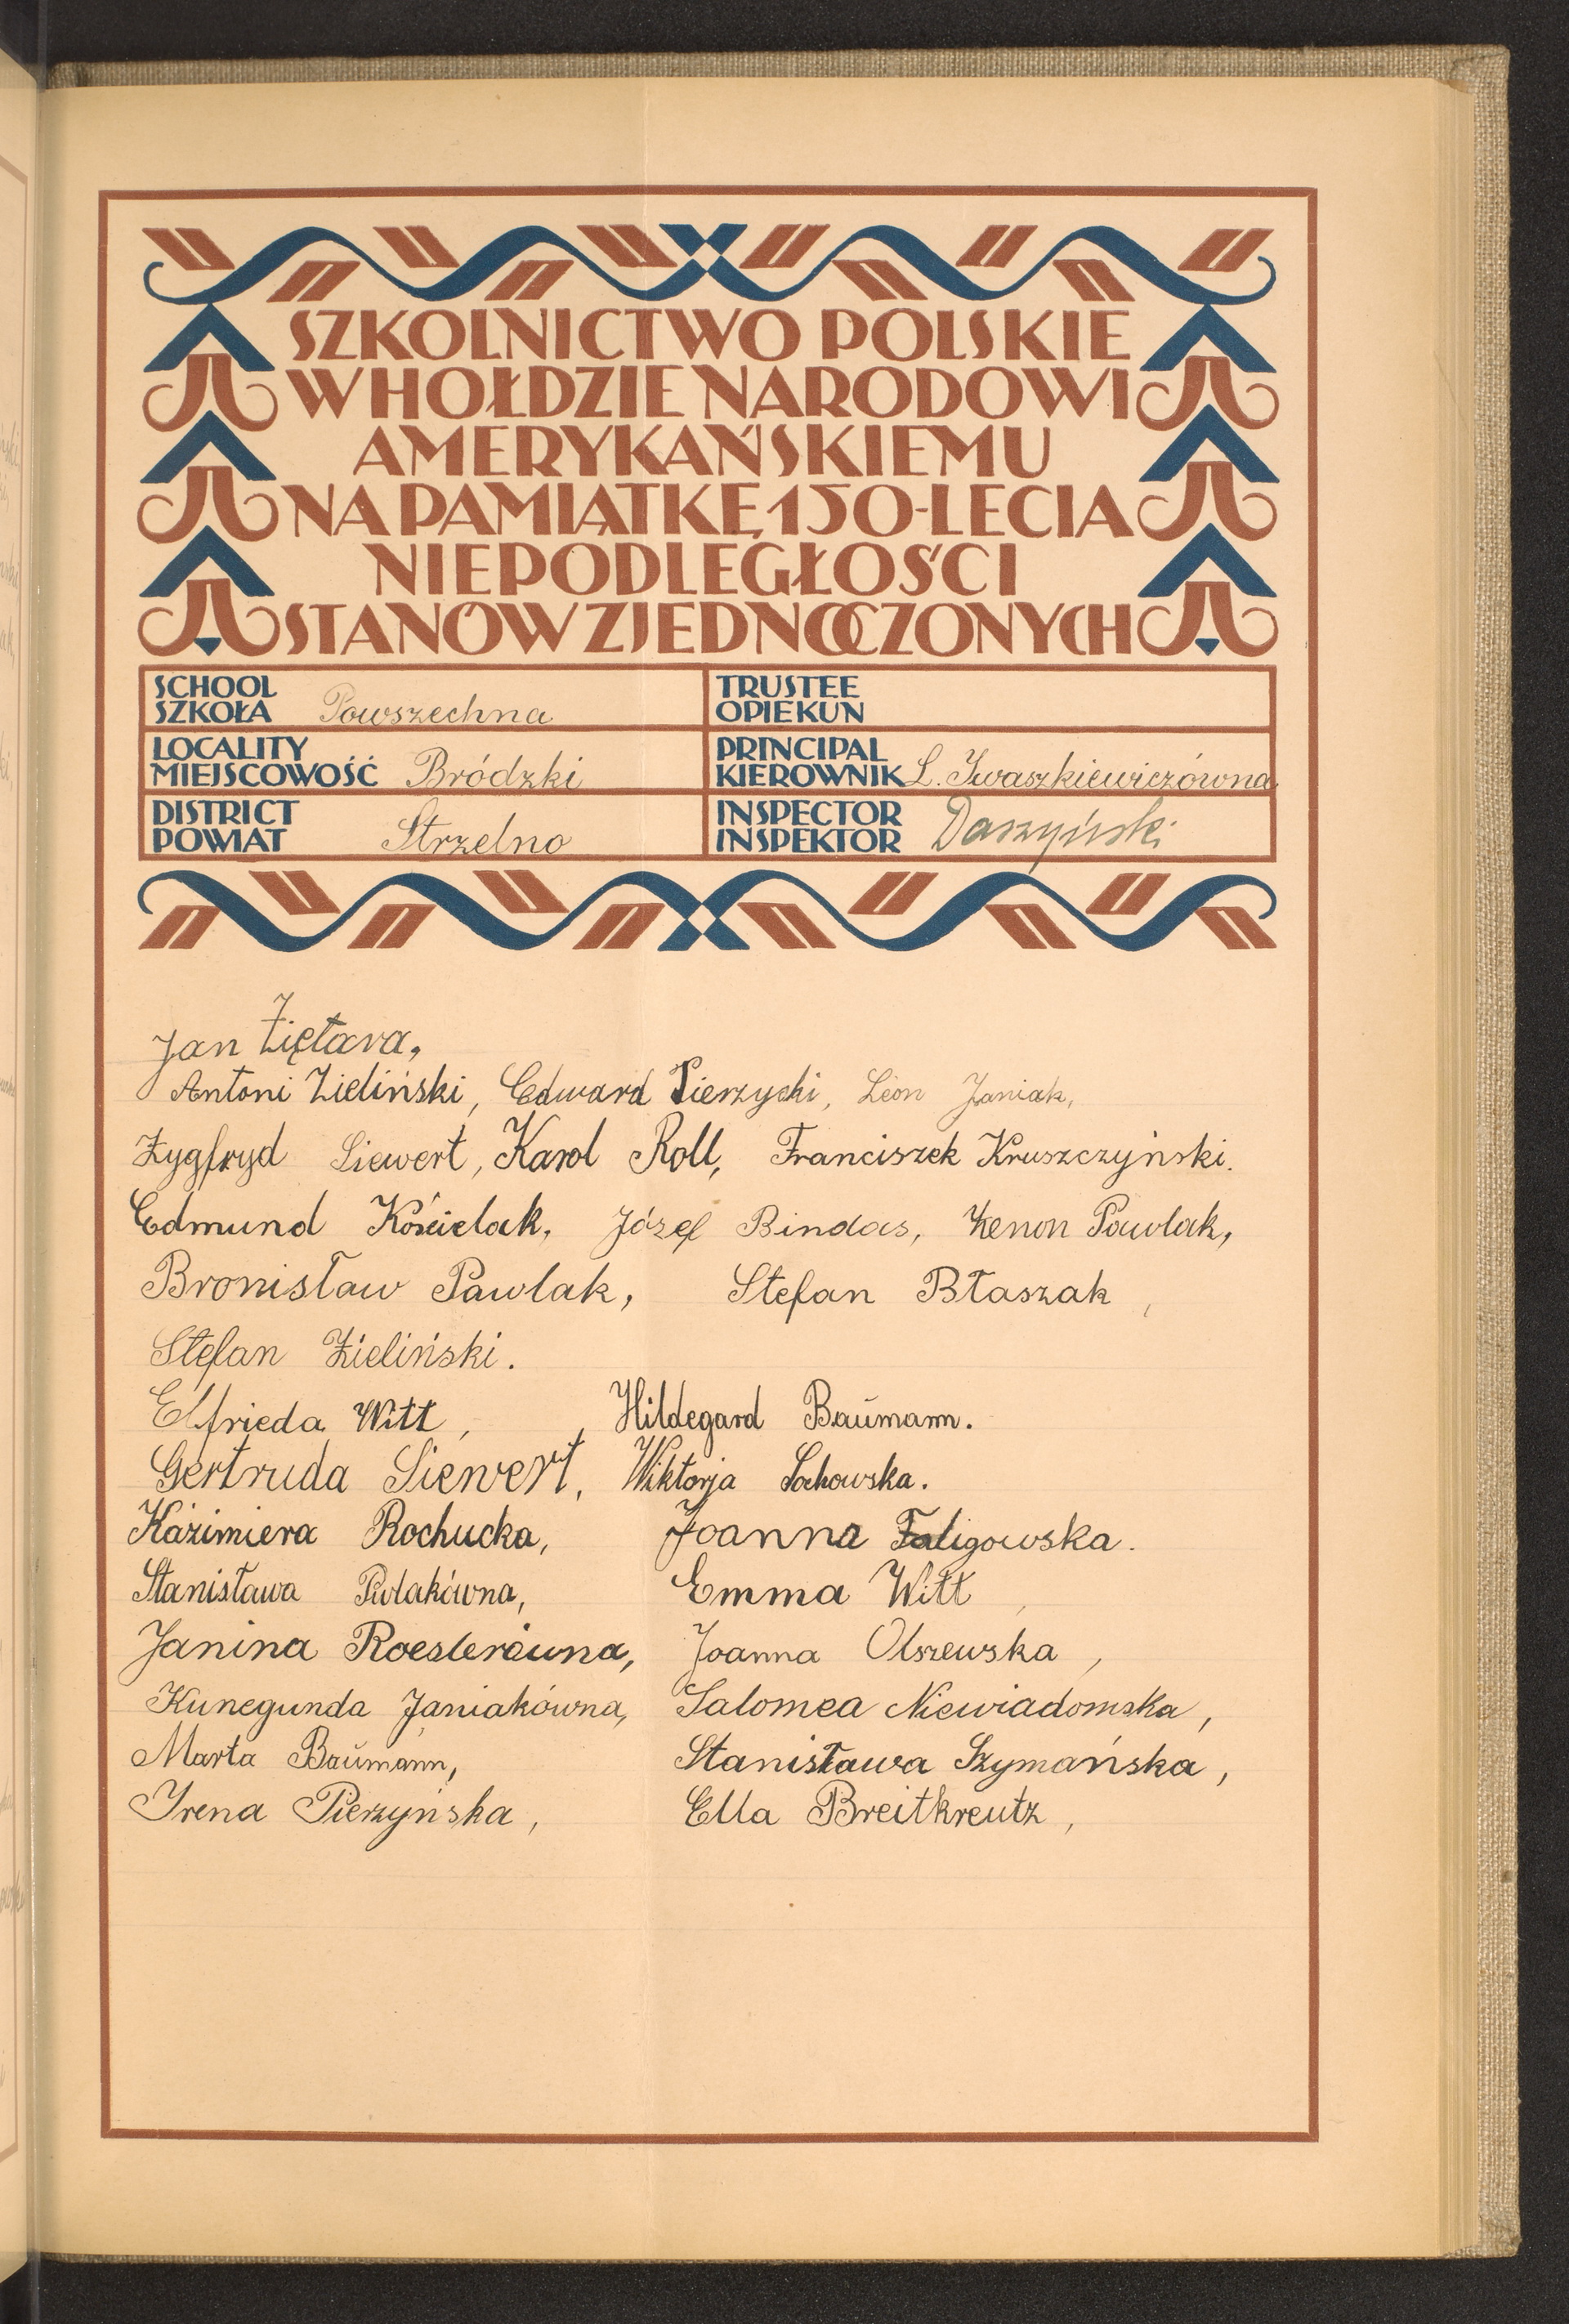 SZKOLNICTWO POLSKIE
W HOŁDZIE NARODOWI
AMERYKAŃSKIEMU
NA PAMIĄTKĘ 150-LECIA
NIEPODLEGŁOŚCI
STANÓW ZJEDNOCZONYCH
SCHOOL
SZKOŁA Powszechna
TRUSTEE
OPIEKUN
LOCALITY
MIEJSCOWOŚĆ Bródzki
PRINCIPAL
KIEROWNIK L. Iwaszkiewiczówna
DISTRICT
POWIAT Strzelno
INSPECTOR
INSPEKTOR Daszyński
Jan Ziętara,
Antoni Zieliński, Edward Pierzycki, Leon Janiak,
Zygfryd Siewert, Karol Roll, Franciszek Kruszczyński.
Edmund Kościelak, Józef Bindas, Zenon Pawlak,
Bronisław Pawlak, Stefan Błaszak,
Stefan Zieliński.
Elfrieda Witt, Hildegard Baŭmann.
Gertruda Siewert, Wiktorja Sochowska.
Kazimiera Rochucka, Joanna Faligowska.
Stanisława Pwlakówna, Emma Witt,
Janina Roeslerówna, Joanna Olszewska,
Kunegunda Janiakówna, Salomea Niewiadomska,
Marta Baŭmann, Stanisława Szymańska,
Irena Pierzyńska, Ella Breitkreutz,